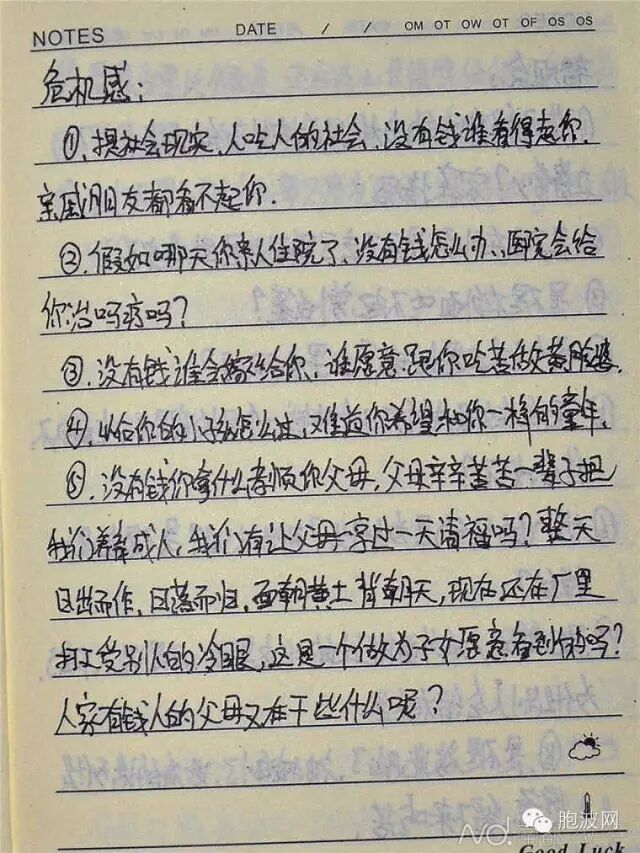 NOTES DATE / / OM OT OW OT OF OS OS
危机感:
①.摆社会现实,人吃人的社会,没有钱谁看得起你,
亲戚朋友都看不起你.
②.假如哪天你亲人住院了,没有钱怎么办,医院会给
你治吗疗吗?
③.没有钱谁会嫁给你,谁愿意跟你吃苦做黄脸婆,
④.以后你的小孩怎么过,难道你希望和你一样的童年,
⑤.没有钱你拿什么孝顺你父母,父母辛辛苦苦一辈子把
我们养育成人,我们有让父母享过一天请福吗?整天
日出而作,日落而归,面朝黄土背朝天,现在还在厂里
打工受别人的冷眼,这是一个做为子女愿意看到的吗?
人家有钱人的父母又在干些什么呢?
胞波网
Good Luck